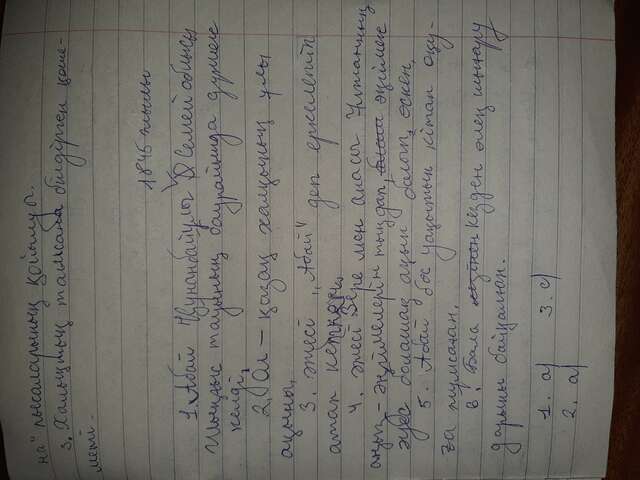 на" мысалдарының қойылуы.
3. Халықтың тамсана білдірген көне-
меті.
1845 жылы
1. Абай Құнанбайұлы Семей облысы
Шыңғыс тауының баурайында дүниеге
келді.
2. Ол – қазақ халқының ұлы
ақыны.
3. әжесі „Абай" деп еркелетіп
атап кеткен.
4. әжесі Зере мен анасы Ұлжанның
аңыз - әңгімелерін тыңдап, әңгімеге
әуес болашақ ақын болып, өскен.
5. Абай бос уақытын кітап оқу-
ға жұмсаған.
6. Бала кезден өлең шығару
дарыны байқалған.
1. а) 3. с)
2. а)